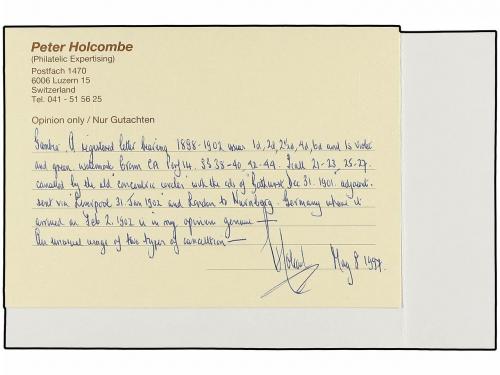 Peter Holcombe
(Philatelic Expertising)
Postfach 1470
6006 Luzern 15
Switzerland
Tel. 041 - 51 56 25
Opinion only / Nur Gutachten
Gambia. A registered letter bearing 1898-1902 issues 1d, 2d, 2½d, 4d, 6d and 1s violet
and green watermark Crown CA Perf 14. SG 38-40, 42-44. Scott 21-23, 25-27.
cancelled by the old "concentric circles" with the cds of "Bathurst Dec 31. 1901" adjacent.
sent via "Liverpool 31. Jan 1902 and London to Nürnberg. Germany where it
arrived on Feb. 2. 1902 is in my opinion genuine —
An unusual usage of two types of cancellation —
May 8 1987.